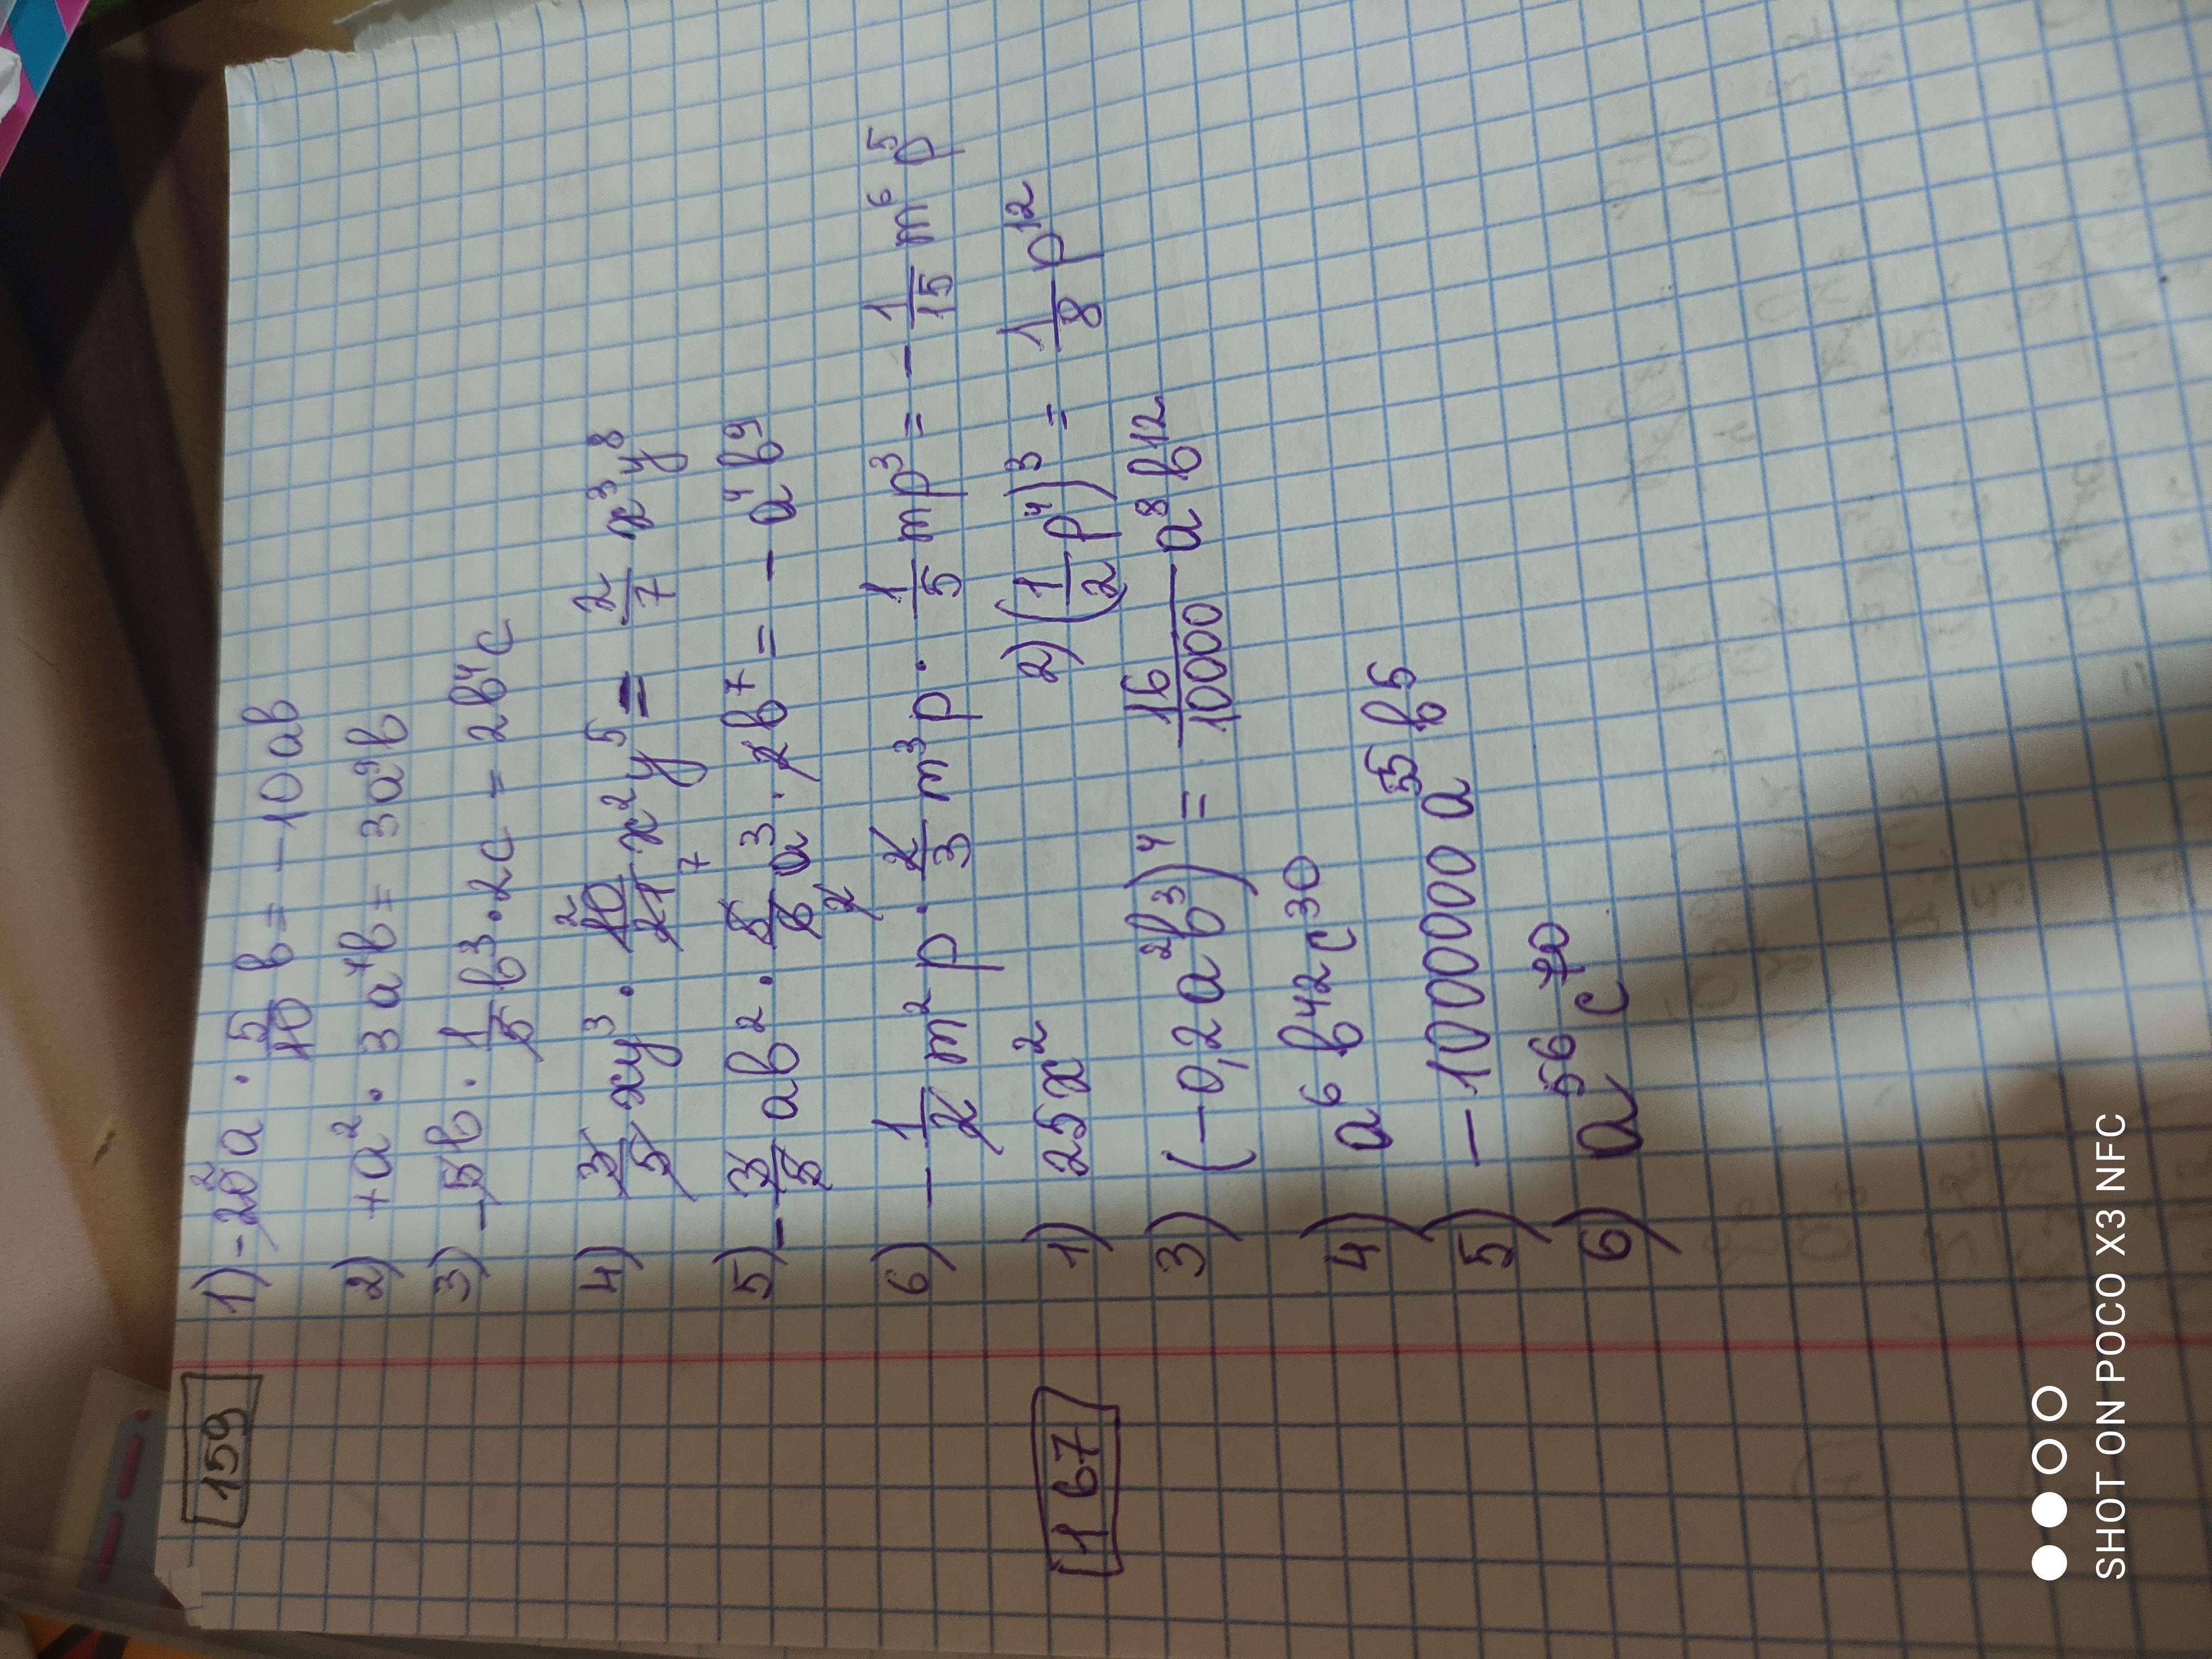 159
1) -20² a · 5/10 b = -10ab
2) +a² · 3a⁷b = 3a⁹b
3) -5b · 1/5 b³ · 2c = 2b⁴c
4) 3/5 xy³ · 10/21 x²y⁵ = 2/7 x³y⁸
5) -3/5 ab² · 5/6 a³ · 2b⁷ = -a⁴b⁹
6) -1/2 m²p · 2/3 m³p · 1/5 mp³ = -1/15 m⁶p⁵
167
1) 25x² 2) (1/2 p⁴)³ = 1/8 p¹²
3) (-0,2a²b³)⁴ = 16/10000 a⁸b¹²
4) a⁶b⁴²c³⁰
5) -10000000 a³⁵b⁵
6) a⁵⁶c⁷⁰
SHOT ON POCO X3 NFC